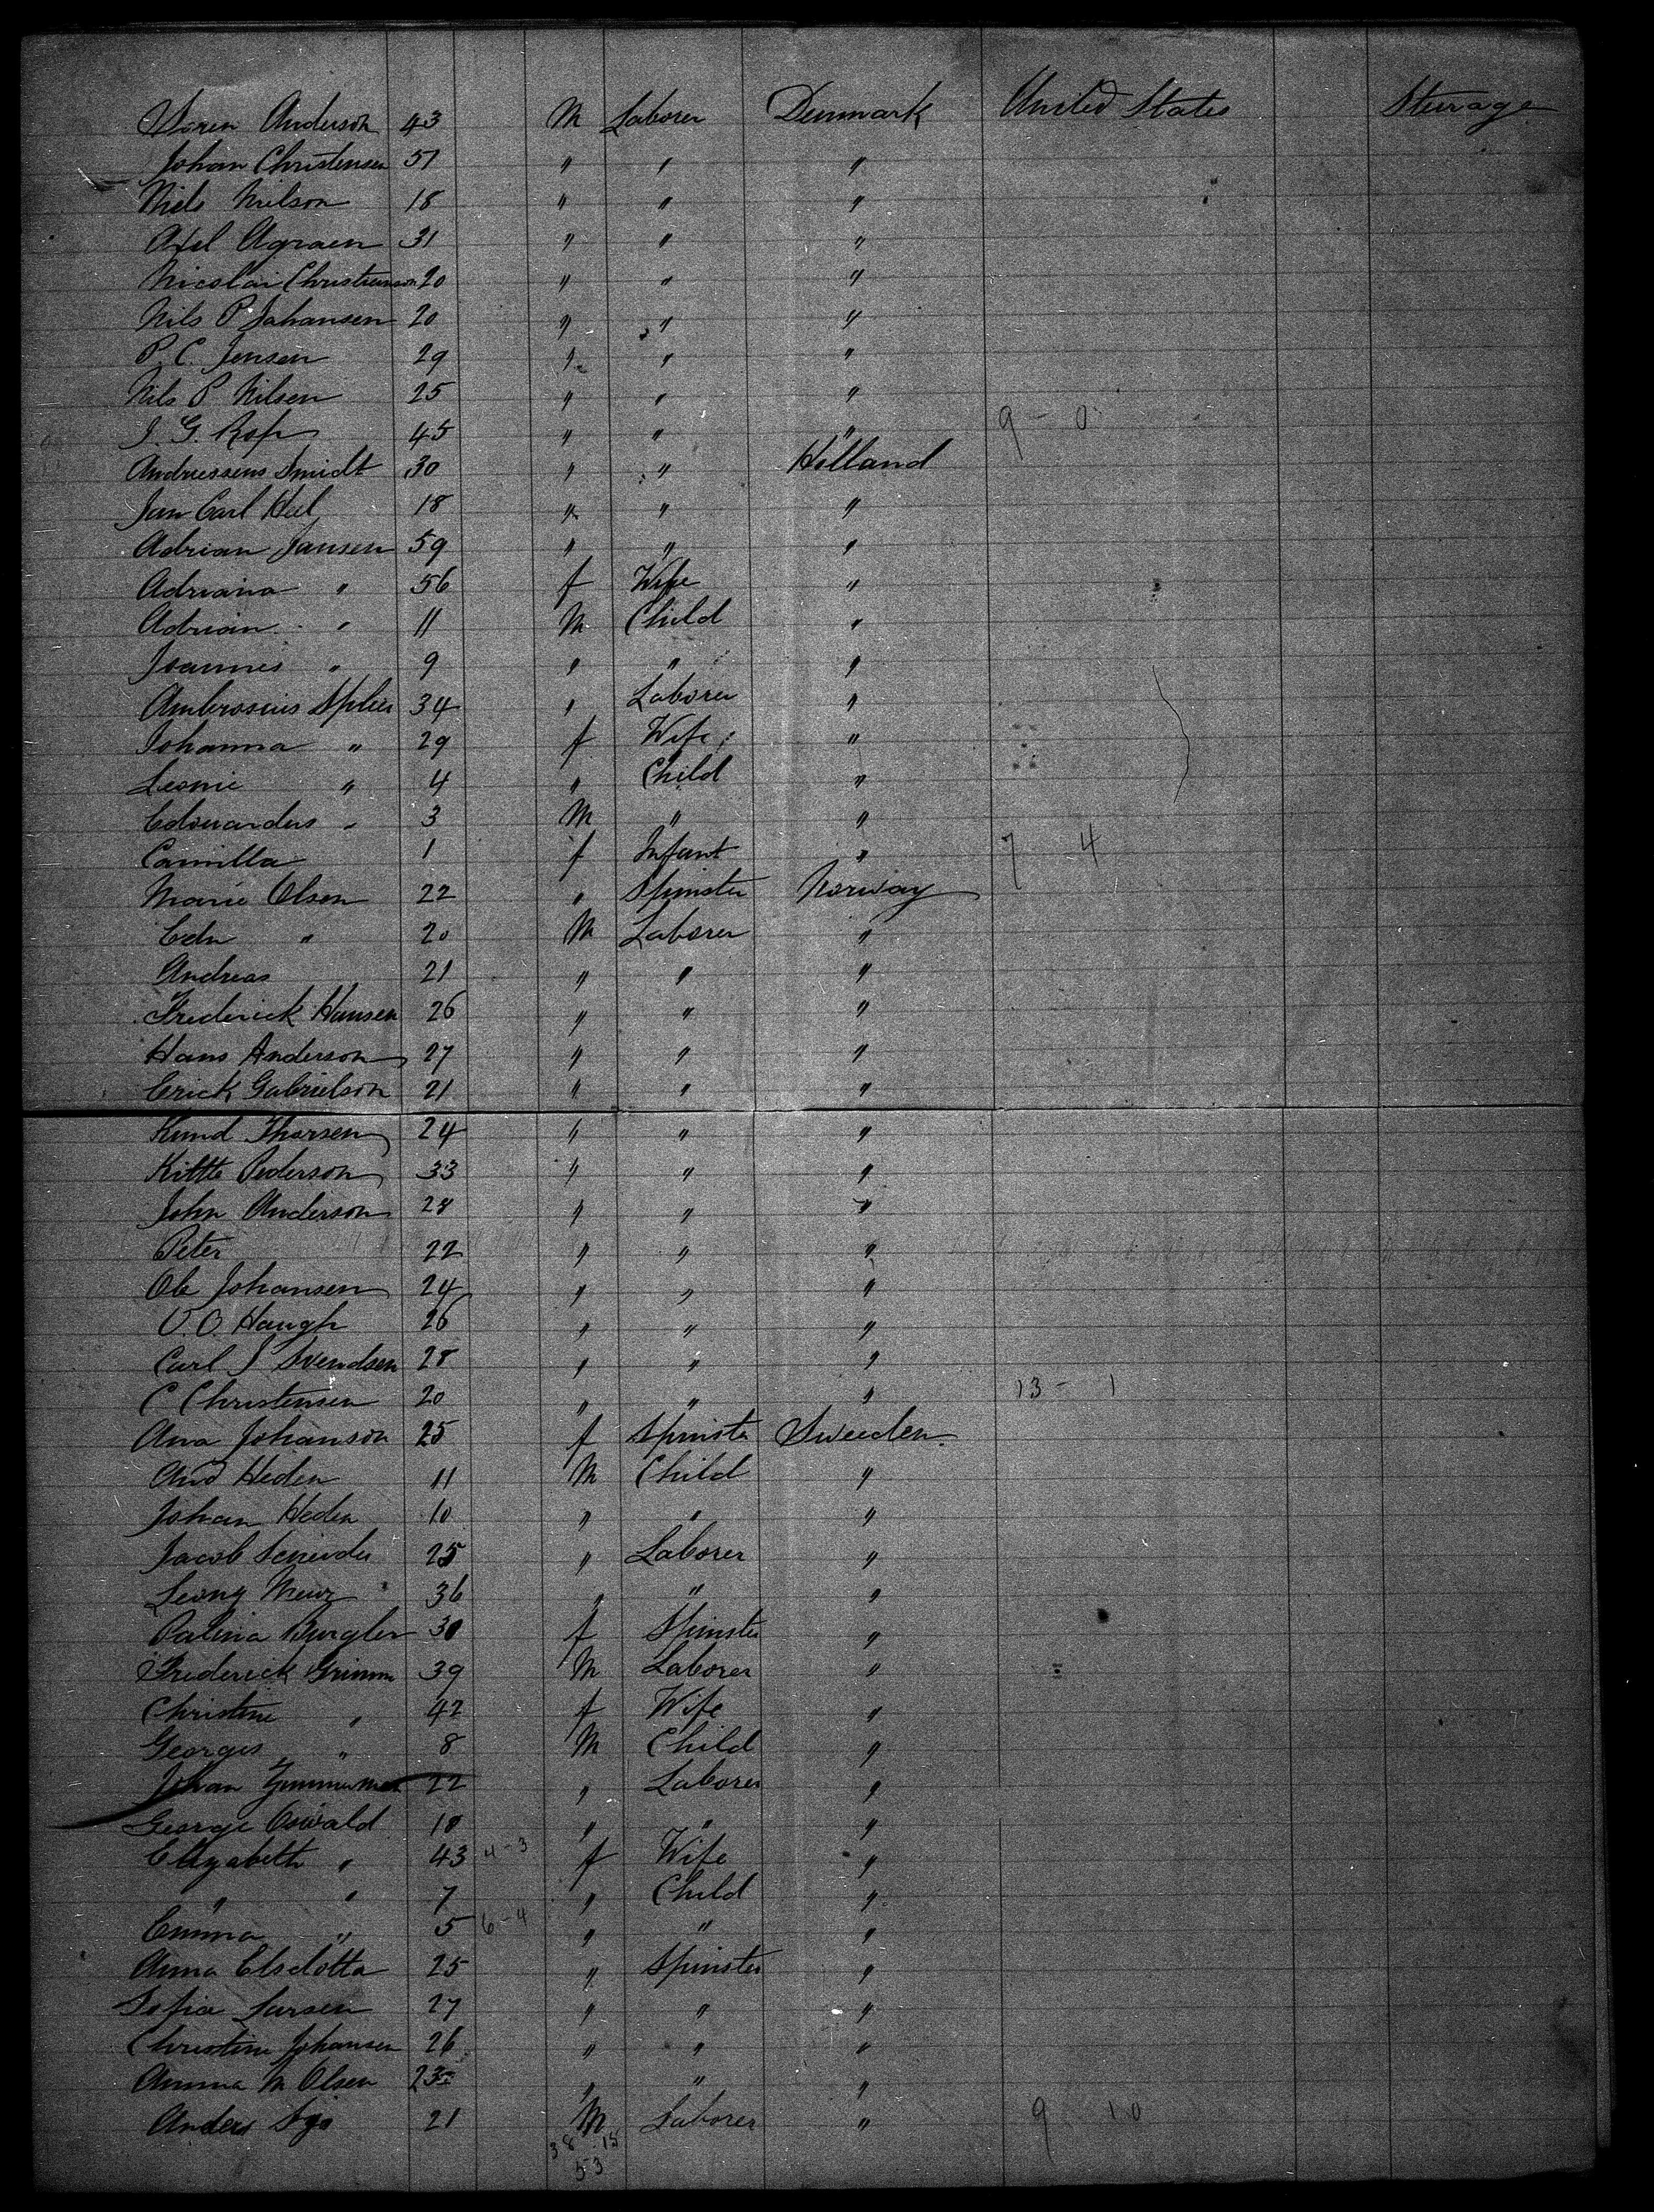 Soren Anderson 43 M Laborer Denmark United States Sturage
Johan Christensen 51 " " "
Niels Nielson 18 " " "
Axel Agraen 31 " " "
Nicolai Christianson 20 " " "
Nils P Johansen 20 " " "
P. C. Jensen 29 " " "
Nils P Nilsen 25 " " "
J. G. 45 " " " 9 - 0
Andriessens Smidt 30 " " Holland
Jan Carl Hul 18 " " "
Adrian Jansen 59 " " "
Adriana " 56 f Wife "
Adrian " 11 M Child "
Joannes " 9 " " "
Ambrosius 34 " Laborer "
Johanna " 29 f Wife "
Leonie " 4 " Child "
Edouardus " 3 M " "
Camilla 1 f Infant " 7 4
Marie Olsen 22 " Spinster Norway
Edn " 20 M Laborer "
Andreas 21 " " "
Frederick Hansen 26 " " "
Hans Anderson 27 " " "
Erick Gabrielson 21 " " "
Knud Thorsen 24 " " "
Kittle Pederson 33 " " "
John Anderson 28 " " "
Peter 22 " " "
Ole Johansen 24 " " "
O. O. Haugh 26 " " "
Carl J Svendsen 28 " " "
C Christensen 20 " " " 13 - 1
Ana Johanson 25 f Spinste Sweeden
And Heden 11 M Child "
Johan Heden 10 " " "
Jacob Scneider 25 " Laborer "
36 " " "
Palina Burgler 30 f Spinster "
Frederick Grimm 39 M Laborer "
Christine " 42 f Wife "
Georges " 8 M Child "
Johan Zimmerman 22 " Laborer "
George Oswald 18 " " "
Elizabeth " 43 4-3 f Wife "
" " 7 " Child "
Emma " 5 6-4 " " "
Anna Elsdotta 25 " Spinster "
Sofia Larsen 27 " " "
Christine Johansen 26 " " "
Amma M Olsen 23 " " "
Anders 21 M Laborer " 9 10
38 15
53